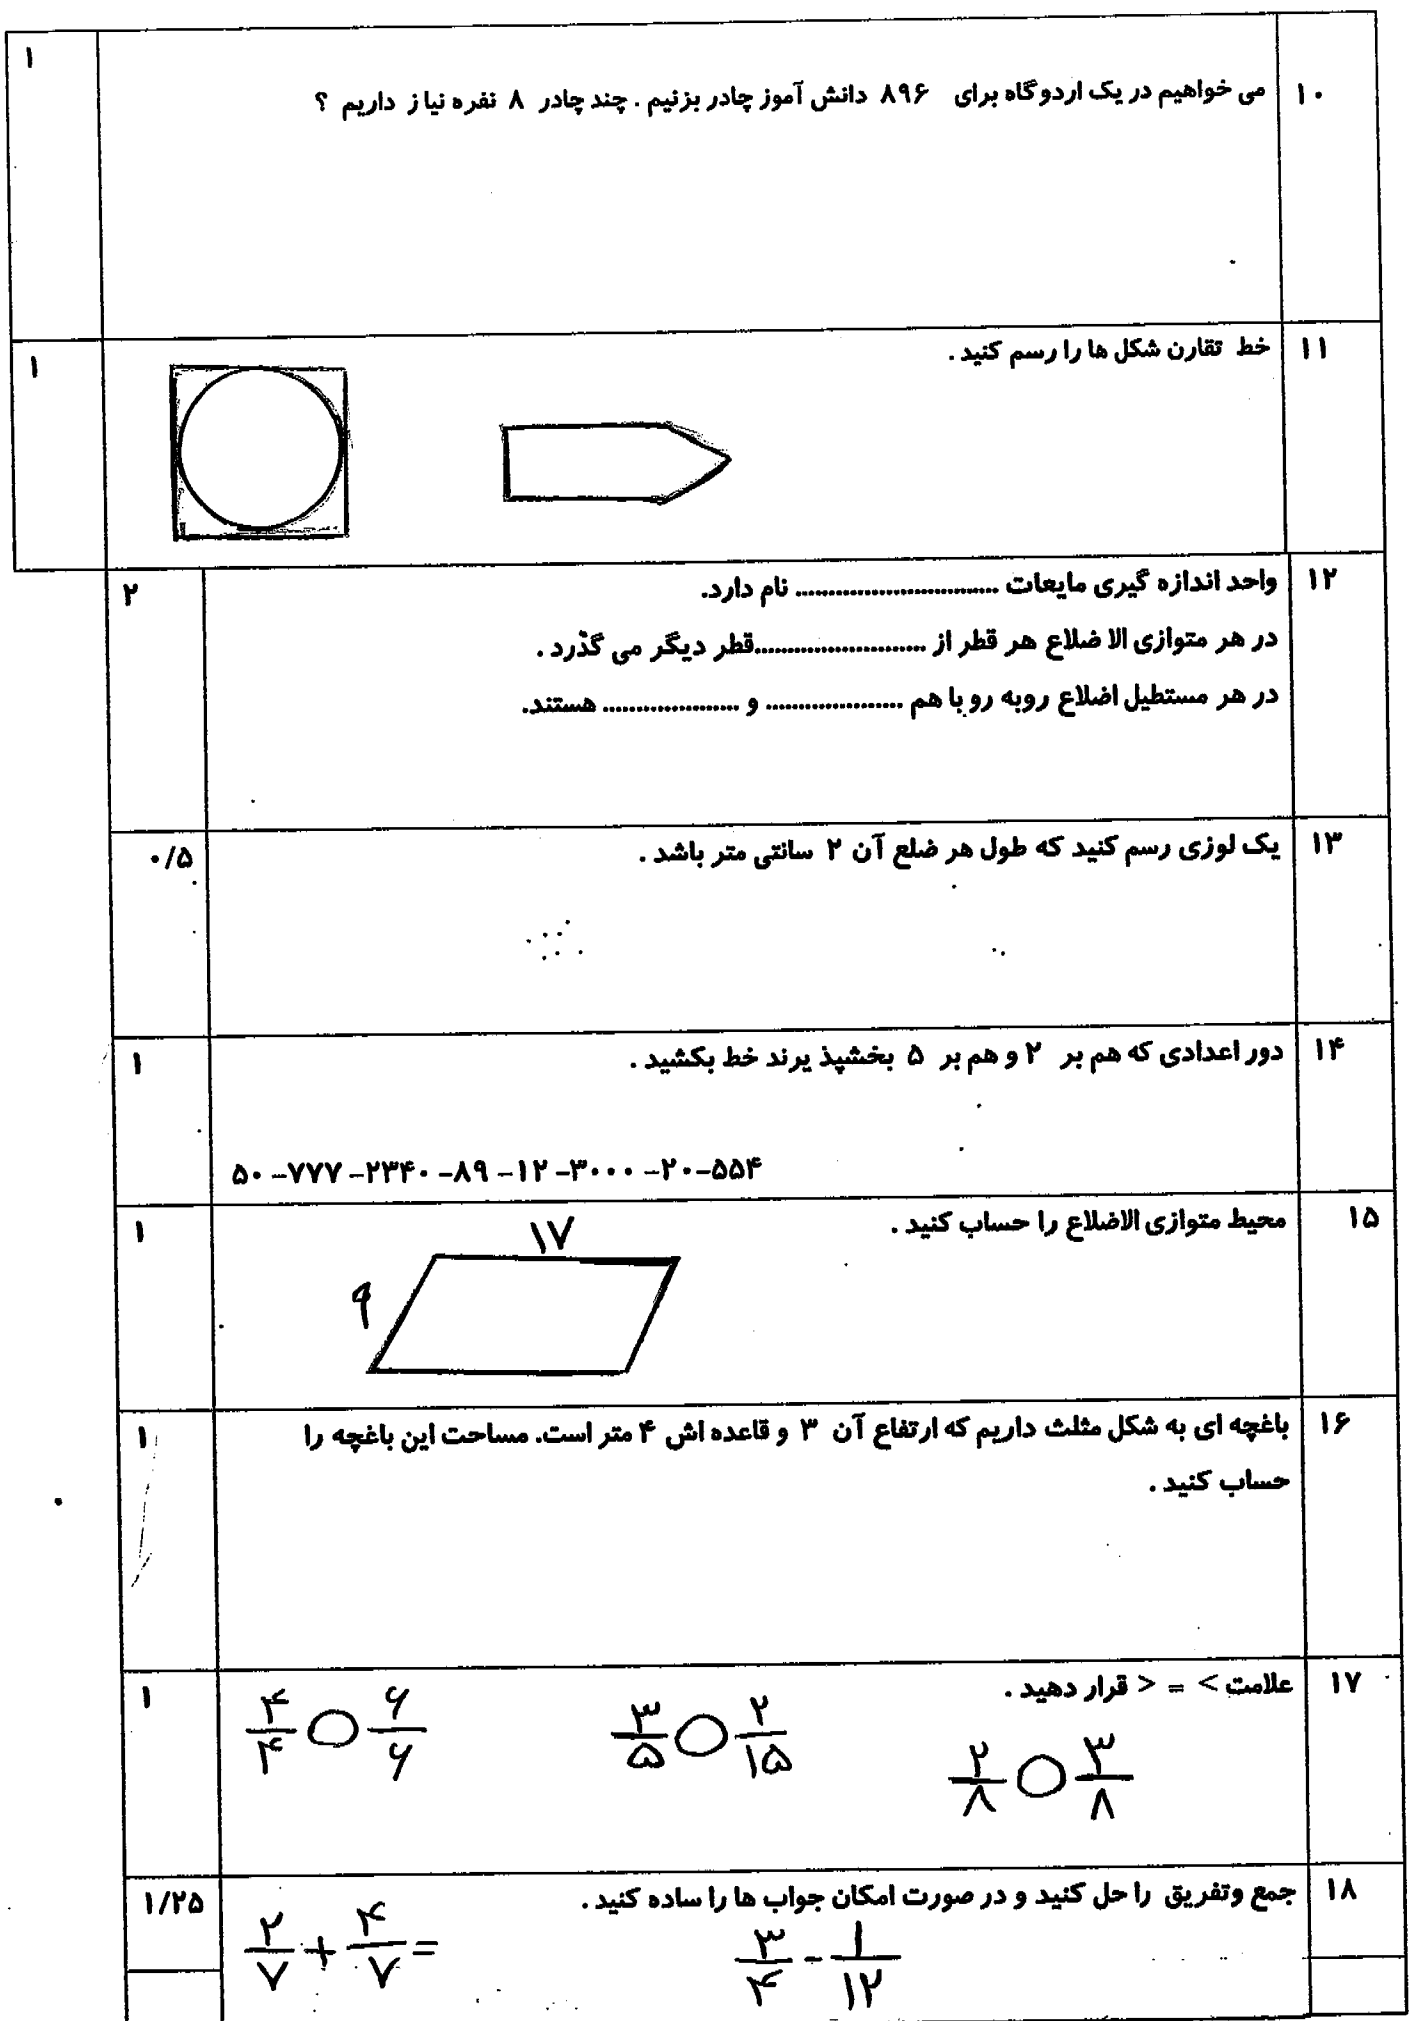 ۱۰ می خواهیم در یک اردوگاه برای ۸۹۶ دانش آموز چادر بزنیم . چند چادر ۸ نفره نیاز داریم ؟ ۱
۱۱ خط تقارن شکل ها را رسم کنید . ۱
۱۲ واحد اندازه گیری مایعات .............................. نام دارد. ۲
در هر متوازی الا ضلاع هر قطر از ..........................قطر دیگر می گذرد .
در هر مستطیل اضلاع روبه رو با هم .................... و .................... هستند.
۱۳ یک لوزی رسم کنید که طول هر ضلع آن ۲ سانتی متر باشد . ۰/۵
۱۴ دور اعدادی که هم بر ۲ و هم بر ۵ بخشپذ یرند خط بکشید . ۱
۵۰ -۷۷۷ -۲۳۴۰ -۸۹ -۱۲ -۳۰۰۰ -۲۰-۵۵۴
۱۵ محیط متوازی الاضلاع را حساب کنید . ۱
۱۷
۹
۱۶ باغچه ای به شکل مثلث داریم که ارتفاع آن ۳ و قاعده اش ۴ متر است. مساحت این باغچه را ۱
حساب کنید .
۱۷ علامت > = < قرار دهید . ۱
۴/۴ ○ ۶/۶
۳/۵ ○ ۲/۱۵
۲/۸ ○ ۳/۸
۱۸ جمع وتفریق را حل کنید و در صورت امکان جواب ها را ساده کنید . ۱/۲۵
۲/۷ + ۴/۷ =
۳/۴ - ۱/۱۲